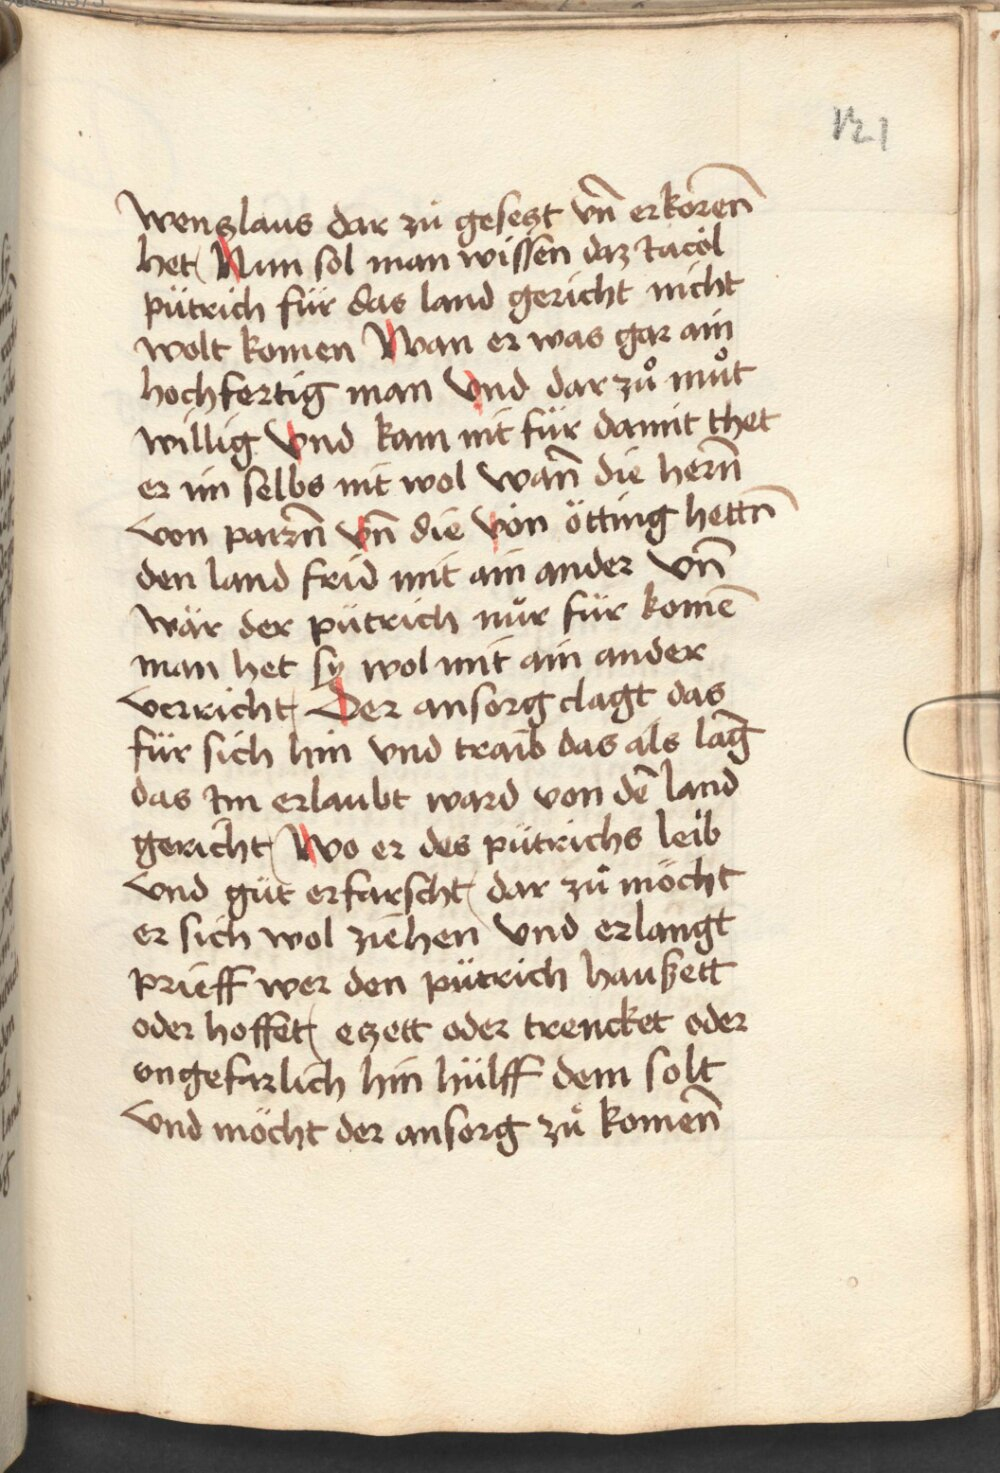 121
wenzlaus dar zu gesezt vn̄ erkorenn̄
het Nun sol man wissen daz Iacob
pütrich für das land gericht nicht
wolt komen Wan er was gar ain
hochfertig man Vnd dar zuͦ muͦt
willig Vnd kam nit für damit thet
er im selbs nit wol wan̄ die hern̄
von pairn̄ vn̄ die von ötting hettn̄
den land frid mit ain ander vn̄
wär der pütrich nur für komē
man het sy wol mit ain ander
verricht Der ansorg clagt das
für sich hin vnd traib das als lāg
das Im erlaubt ward von dē land
gericht Wo er des pütrichs leib
vnd güt erfarscht dar zu möcht
er sich wol ziehen vnd erlangt
prieff wer den pütrich haußett
oder hoffet ezett oder trencket oder
ongefarlich hin hülff dem solt
vnd möcht der ansorg zu komen̄